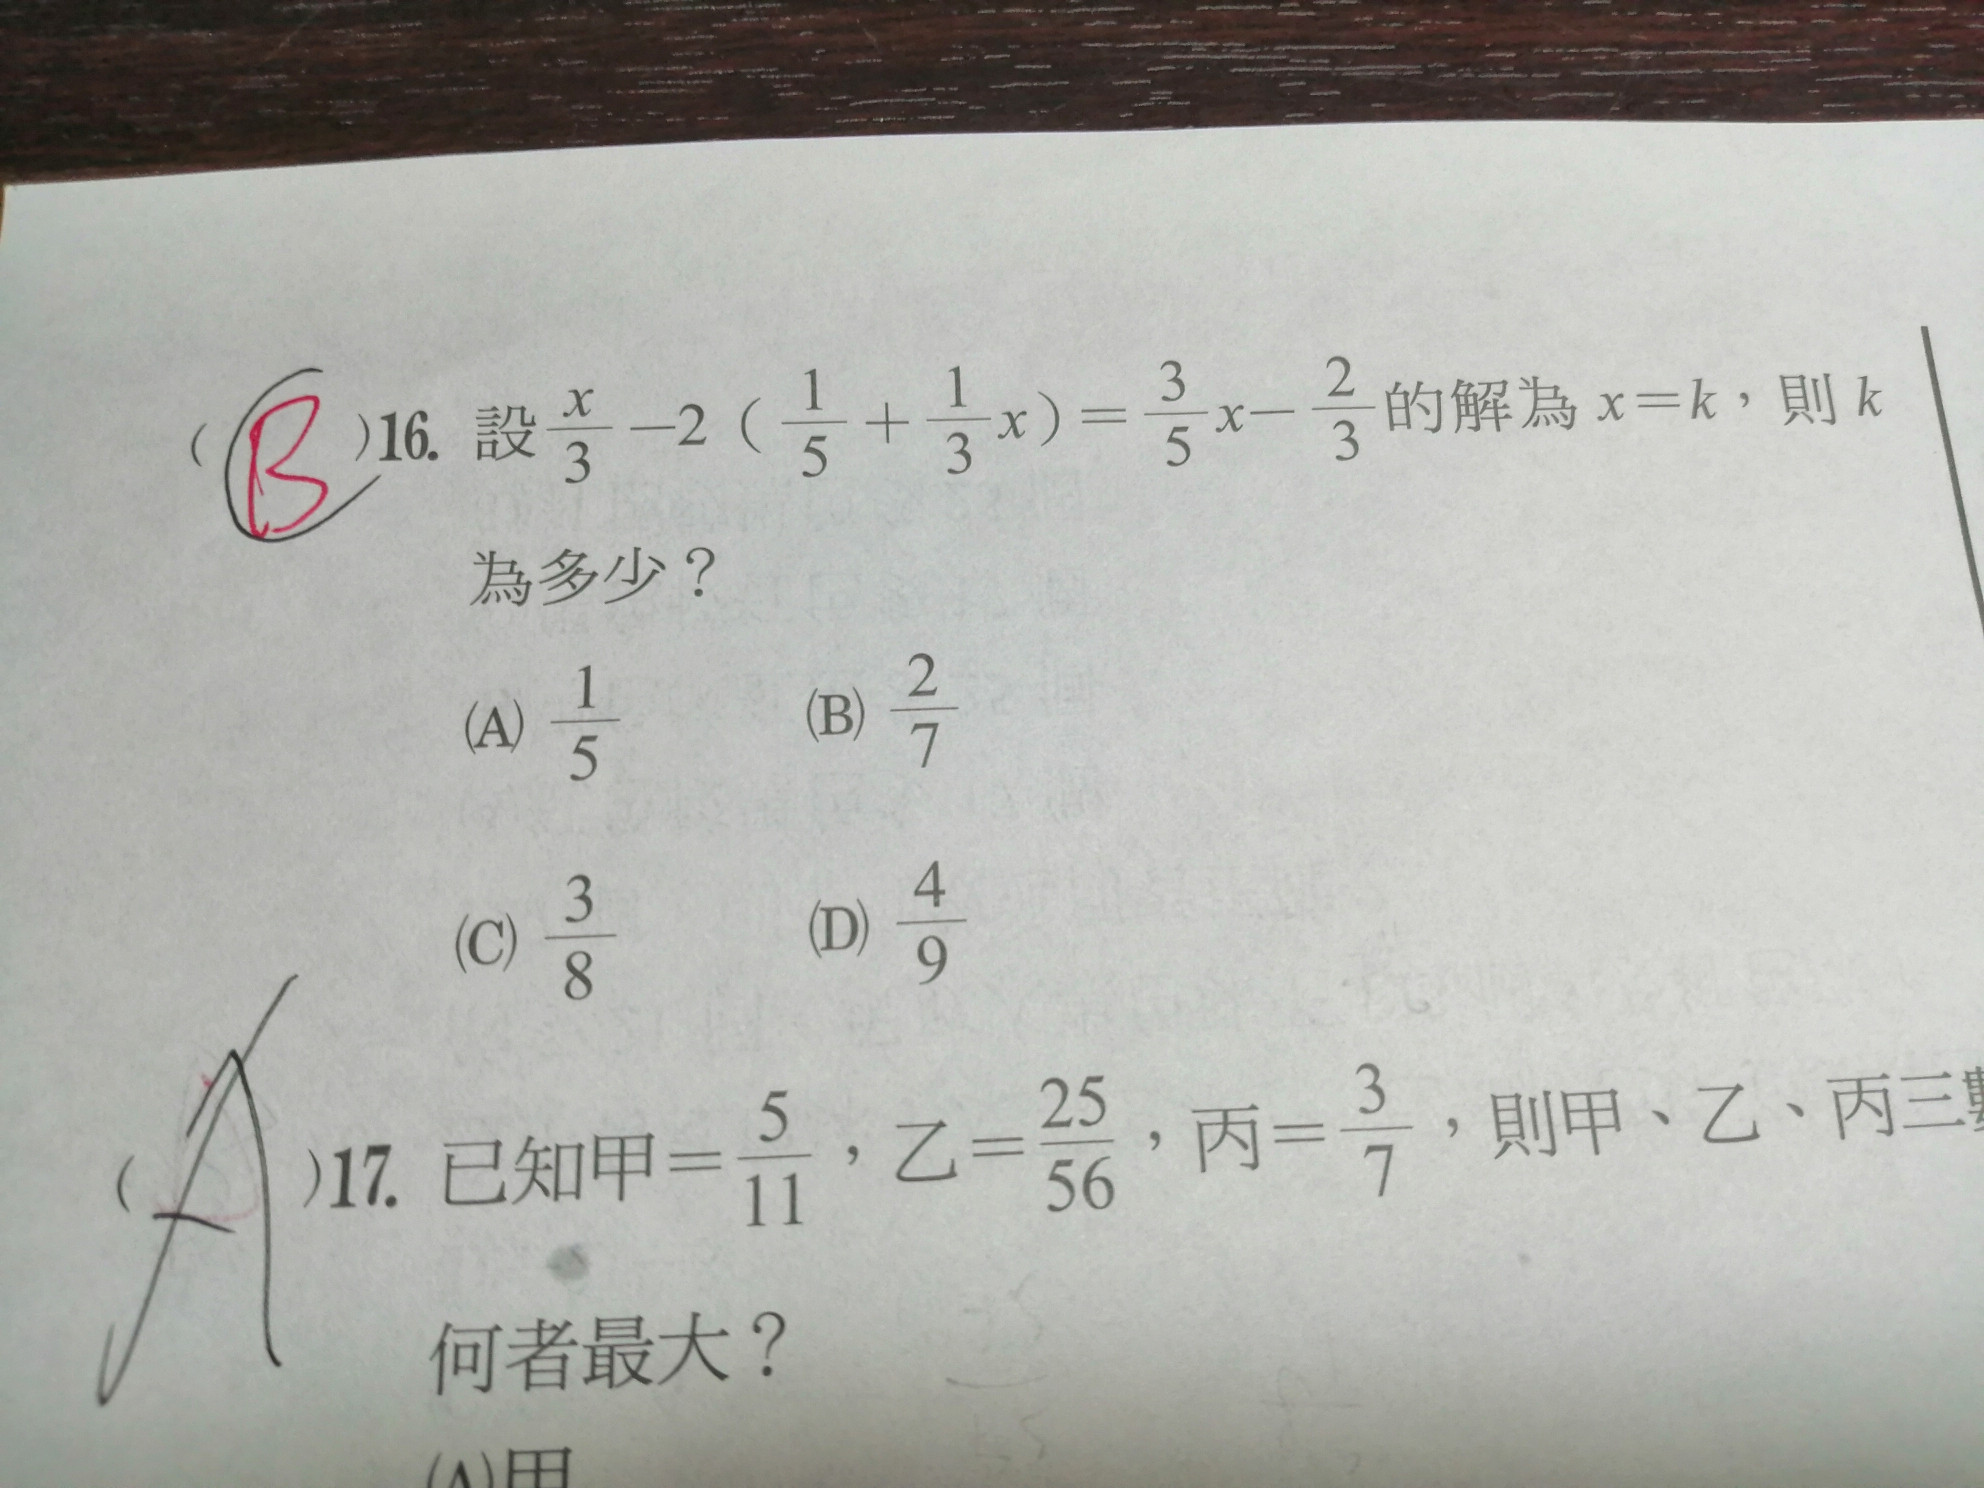 (B)16. 設 x/3 －2（1/5＋1/3x）＝3/5x－2/3 的解為 x＝k，則 k
為多少？
(A) 1/5 (B) 2/7
(C) 3/8 (D) 4/9
(A)17. 已知甲＝5/11，乙＝25/56，丙＝3/7，則甲、乙、丙三數
何者最大？
(A)甲